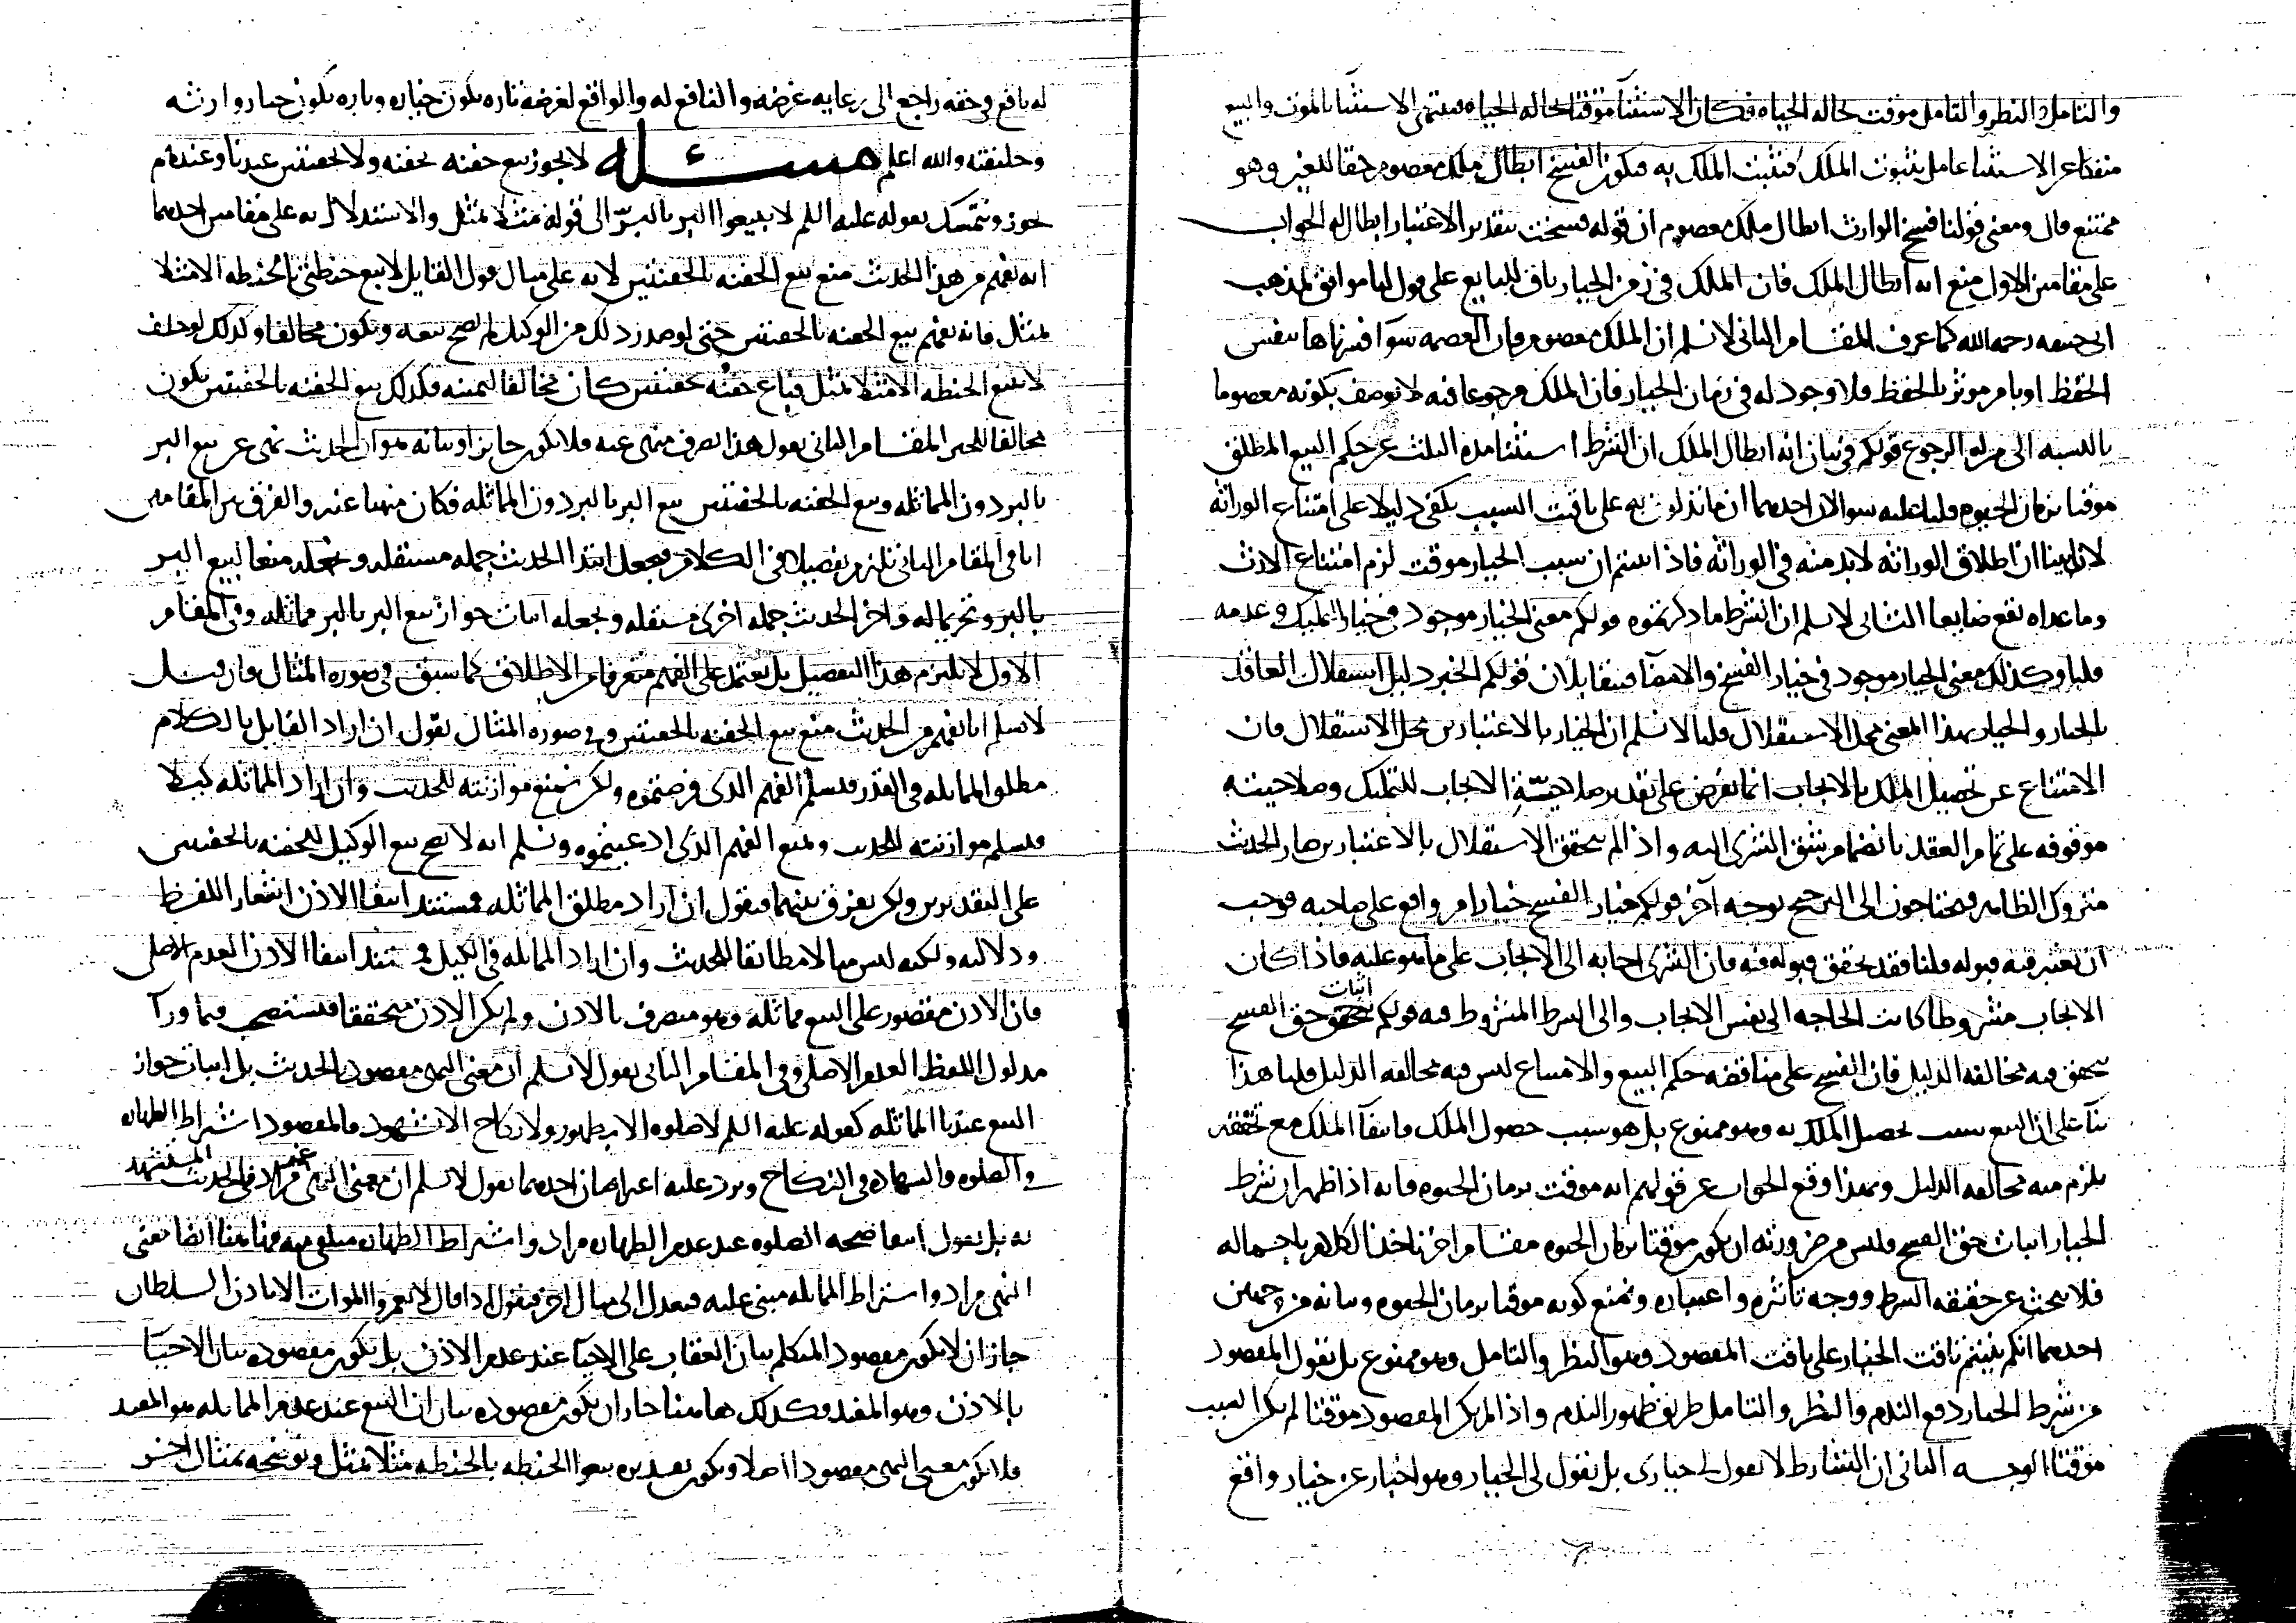 والتامل والنظر والتامل موقت بحاله الحياه فكان الاستثنا موقتا بحاله الحياه فينتهى الاستثنا بالموت والبيع
منفكا عن الاستثنا عامل بثبوت الملك فيثبت الملك به فيكون الفسخ ابطال ملك معصوم حقا للغير وهو
ممتنع قال ومعنى قولنا فسخ الوارث ابطال ملك معصوم ان قوله فسخت بتقدير الاعتبار ابطال له الجواب
على مقامين الاول منع انه ابطال الملك فان الملك فى زمن الخيار باق للبايع على قول لنا موافق لمذهب
ابى حنيفه رحمه الله كما عرف المقام الثانى لا نسلم ان الملك معصوم فان العصمه سوآ فسرناها بنفس
الحفظ او بامر موثر بالحفظ فلا وجود له فى زمان الخيار فان الملك مرجوعا فيه لا يوصف بكونه معصوما
بالنسبه الى من له الرجوع قولكم فى بيان انه ابطال الملك ان الشرط استثنا مده الثلث عن حكم البيع المطلق
موقتا بزمان الحيوه قلنا عليه سوالان احدهما ان ما تذكرون به على تاقيت السبب يكفى دليلا على امتناع الوراثه
لانا بينا ان اطلاق الوراثه لا بد منه فى الوراثه فاذا بينتم ان سبب الخيار موقت لزم امتناع الارث
وما عداه يقع ضايعا الثانى لا نسلم ان الشرط ما ذكرتموه قولكم معنى الخيار موجود فى خيار التمليك وعدمه
قلنا وكذلك معنى الخيار موجود فى خيار الفسخ والامضا فتقابلا ن قولكم الخبر دليل استقلال العاقد
بالخيار والخيار بهذا المعنى محل الاستقلال قلنا لا نسلم ان الخيار بالاعتبارين محل الاستقلال فان
الامتناع عن تحصيل الملك بالايجاب انما يفرض على تقدير صلاحيّة الايجاب للتمليك وصلاحيته
موقوفه على تمام العقد بانضمام شق الشرى اليه واذا لم يتحقق الاستقلال بالاعتبارين صار الحديث
متروك الظاهر فتحتاجون الى الترجيح بوجه آخر قولكم خيار الفسخ خيار امر واقع على صاحبه فوجب
ان يعتبر فيه قبوله قلنا فقد تحقق قبوله فيه فان الشرى اجابه الى الايجاب على ما هو عليه فاذا كان
الايجاب مشروطا كانت الحاجه الى نفس الايجاب والى الشرط المشروط فيه قولكم اثبات حق الفسخ
يتحقق فيه مخالفه الدليل فان الفسخ على مناقضه حكم البيع والامتناع ليس فيه مخالفه الدليل قلنا هذا
بنآ على ان البيع سبب تحصيل الملك به وهو ممنوع بل هو سبب حصول الملك وابقآ الملك مع تحققه
يلزم منه مخالفه الدليل وبهذا وقع الجواب عن قولهم انه موقت بزمان الحيوه فانه اذا ظهر ان شرط
الخيار اثبات حق الفسخ فليس من ضرورته ان يكون موقتا بزمان الحيوه مقام اخر ناخذ الكلام باجماله
فلا نبحث عن حقيقه الشرط ووجه تاثيره واعتباره ونمنع كونه موقتا بزمان الحيوه وبيانه من وجهين
احدهما انكم بنيتم تاقيت الخيار على تاقيت المقصود وهو النظر والتامل وهو ممنوع بل نقول المقصود
من شرط الخيار دفع الندم والنظر والتامل طريق ظهور الندم واذا لم يكن المقصود موقتا لم يكن السبب
موقتا الوجه الثانى ان الشارط لا يقول لى خيارى بل يقول لى الخيار وهو اخبار عن خيار واقع
له نافع فى حقه راجع الى رعايه غرضه والنافع له والواقع لغرضه تاره يكون خياره وتاره يكون خيار وارثه
وخليفته والله اعلم مسئله لا يجوز بيع حفنه بحفنه ولا بحفنتين عندنا وعندهم
يجوز ونتمسك بقوله عليه السلم لا تبيعوا البر بالبرّ الى قوله مثلا بمثل والاستدلال به على مقامين احدهما
انه يفهم من هذا الحديث منع بيع الحفنه بالحفنتين لانه على مثال قول القايل لا تبع حنطتى بالحنطه الا مثلا
بمثل فانه يفهم بيع الحفنه بالحفنتين حتى لو صدر ذلك من الوكيل لم يصح بيعه ويكون مخالفا وكذلك لو حلف
لا يبيع الحنطه الا مثلا بمثل فباع حفنه بحفنتين كان مخالفا ليمينه فكذلك بيع الحفنه بالحفنتين يكون
مخالفا للخبر المقام الثانى نقول هذا تصرف منهى عنه فلا يكون جايزا وبيانه هو ان الحديث نهى عن بيع البر
بالبر دون المماثله وبيع الحفنه بالحفنتين بيع البر بالبر دون المماثله فكان منهيا عنه والفرق بين المقامين
انا فى المقام الثانى نلتزم تفصيلا فى الكلام فنجعل ابتدا الحديث جمله مستقله ونجعله منعا لبيع البر
بالبر وتحريما له واخر الحديث جمله اخرى مستقله ونجعله اثبات جواز بيع البر بالبر مماثله وفى المقام
الاول لا نلتزم هذا التفصيل بل نعتمد على الفهم من الاطلاق كما سبق فى صوره المثال فان قيل
لا نسلم انا نفهم من الحديث منع بيع الحفنه بالحفنتين وفى صوره المثال نقول ان اراد القايل بالكلام
مطلق المماثله فى القدر فنسلم الفهم الذى فرضتموه ولكن نمنع موازنته للحديث وان اراد المماثله كيلا
فنسلم موازنته للحديث ونمنع الفهم الذى ادعيتموه ونسلم انه لا يصح بيع الوكيل للحفنه بالحفنتين
على التقديرين ولكن نفرق بينهما فنقول ان اراد مطلق المماثله فمستند انتفا الاذن اشعار اللفظ
ودلالته ولكنه ليس مثالا مطابقا للحديث وان اراد المماثله فى الكيل فمستند انتفا الاذن العدم الاصلى
فان الاذن مقصور على البيع مماثله وهو متصرف بالاذن ولم يكن الاذن متحققا فيستصحب فيما ورآ
مدلول اللفظ العدم الاصلى وفى المقام الثانى نقول لا نسلم ان معنى النهى مقصود بالحديث بل اثبات جواز
البيع عند المماثله كقوله عليه السلم لا صلوه الا بطهور ولا نكاح الا بشهود فالمقصود اشتراط الطهاره
فى الصلوه والشهاده فى النكاح ويرد عليه اعتراضان احدهما نقول لا نسلم ان معنى النهى غير مراد فى الحديث المستشهد
به بل نقول انتفا صحه الصلوه عند عدم الطهاره مراد واشتراط الطهاره متلقى منه فهاهنا ايضا معنى
النهى مراد واشتراط المماثله مبنى عليه فنعدل الى مثال اخر فنقول اذا قال لا تعمروا الموات الا باذن السلطان
جاز ان لا يكون مقصود المتكلم بيان العقاب على الاحيآ عند عدم الاذن بل يكون مقصوده بيان الاحيآ
بالاذن وهو المفيد وكذلك هاهنا جاز ان يكون مقصوده بيان ان البيع عند عدم المماثله هو المفيد
فلا يكون معنى النهى مقصودا اصلا ويكون تقديره بيعوا الحنطه بالحنطه مثلا بمثل ونوضحه بمثال اخر